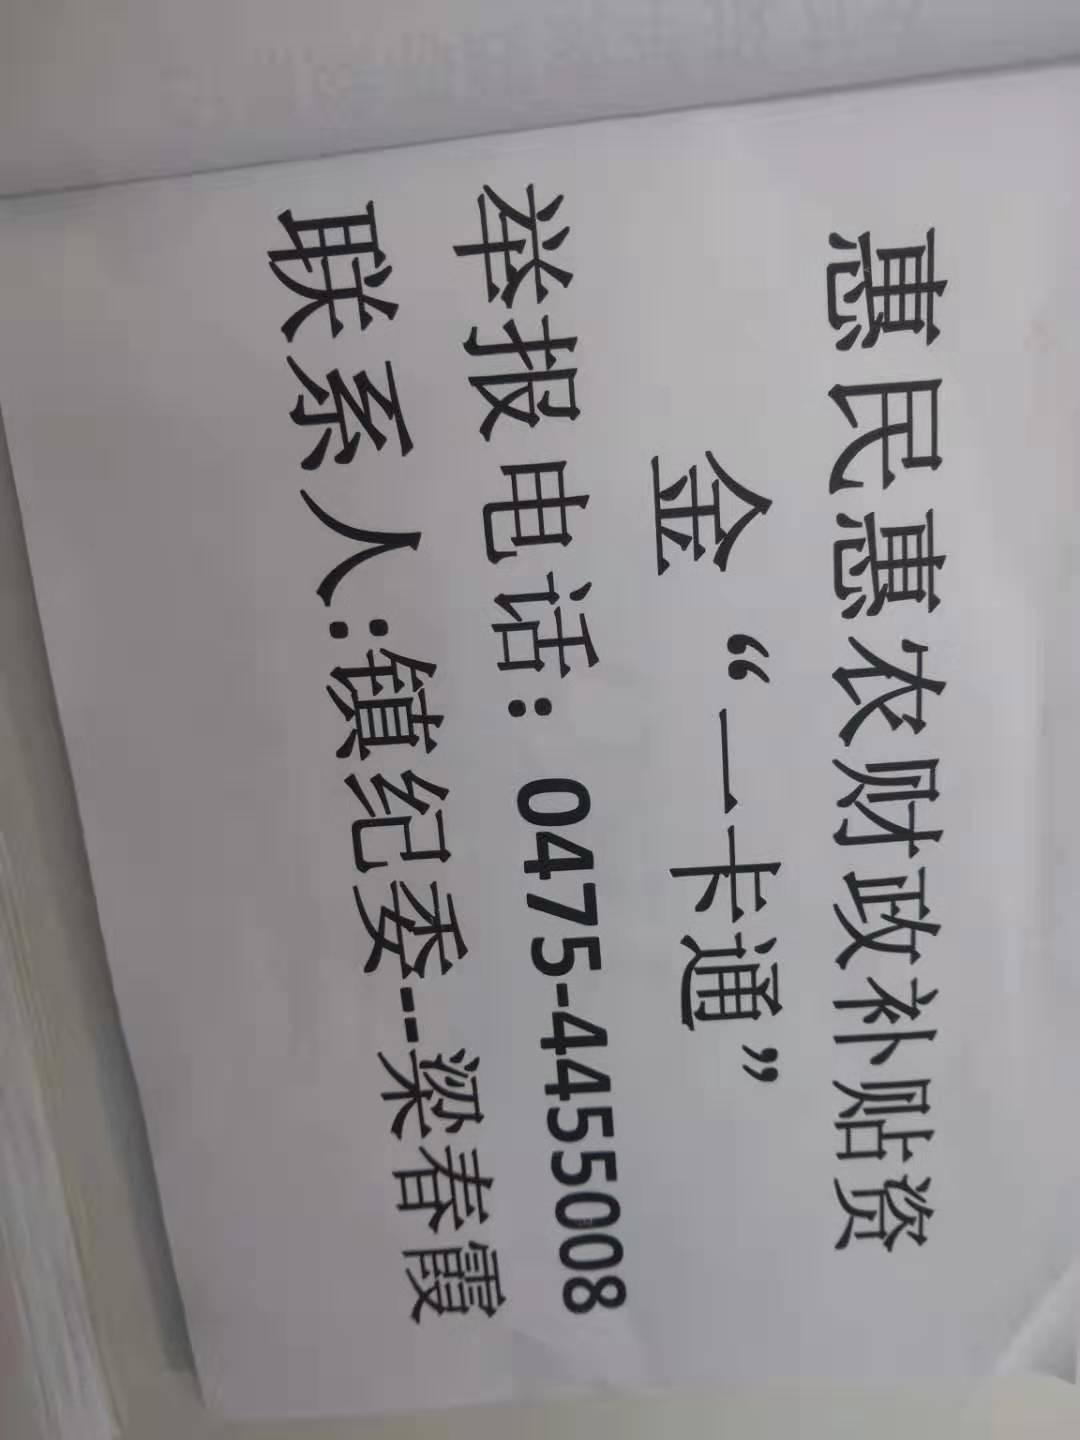 惠民惠农财政补贴资
金“一卡通”
举报电话：0475-4455008
联系人:镇纪委--梁春霞